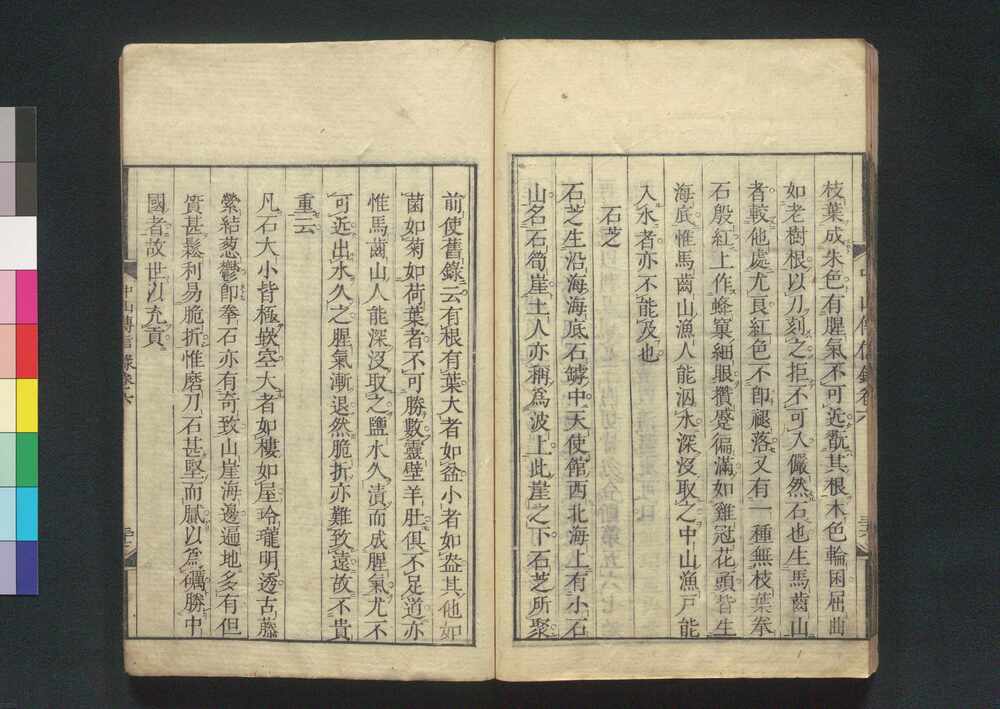 枝葉成朱色有腥氣不可近翫其根木色輪囷屈曲
如老樹根以刀刻之拒不可入儼然石也生馬齒山
者較他處尤良紅色不卽褪落又有一種無枝葉拳
石殷紅上作蜂窠細眼攢蹙徧滿如雞冠花頭皆生
海底惟馬齒山漁人能泅水深沒取之中山漁戶能
入水者亦不能及也
石芝
石芝生沿海海底石罅中天使館西北海上有小石
山名石筍崖土人亦稱爲波上此崖之下石芝所聚
中山傳信錄卷六
前使舊錄云有根有葉大者如盆小者如盌其他如
菌如菊如荷葉者不可勝數靈壁羊肚俱不足道亦
惟馬齒山人能深沒取之鹽水久漬而成腥氣尤不
可近出水久之腥氣漸退然脆折亦難致遠故不貴
重云
凡石大小皆極嵌空大者如樓如屋玲瓏明透古藤
縈結葱鬱卽拳石亦有奇致山崖海邊遍地多有但
質甚鬆利易脆折惟磨刀石甚堅而膩以爲礪勝中
國者故世以充貢
中山傳信錄卷六